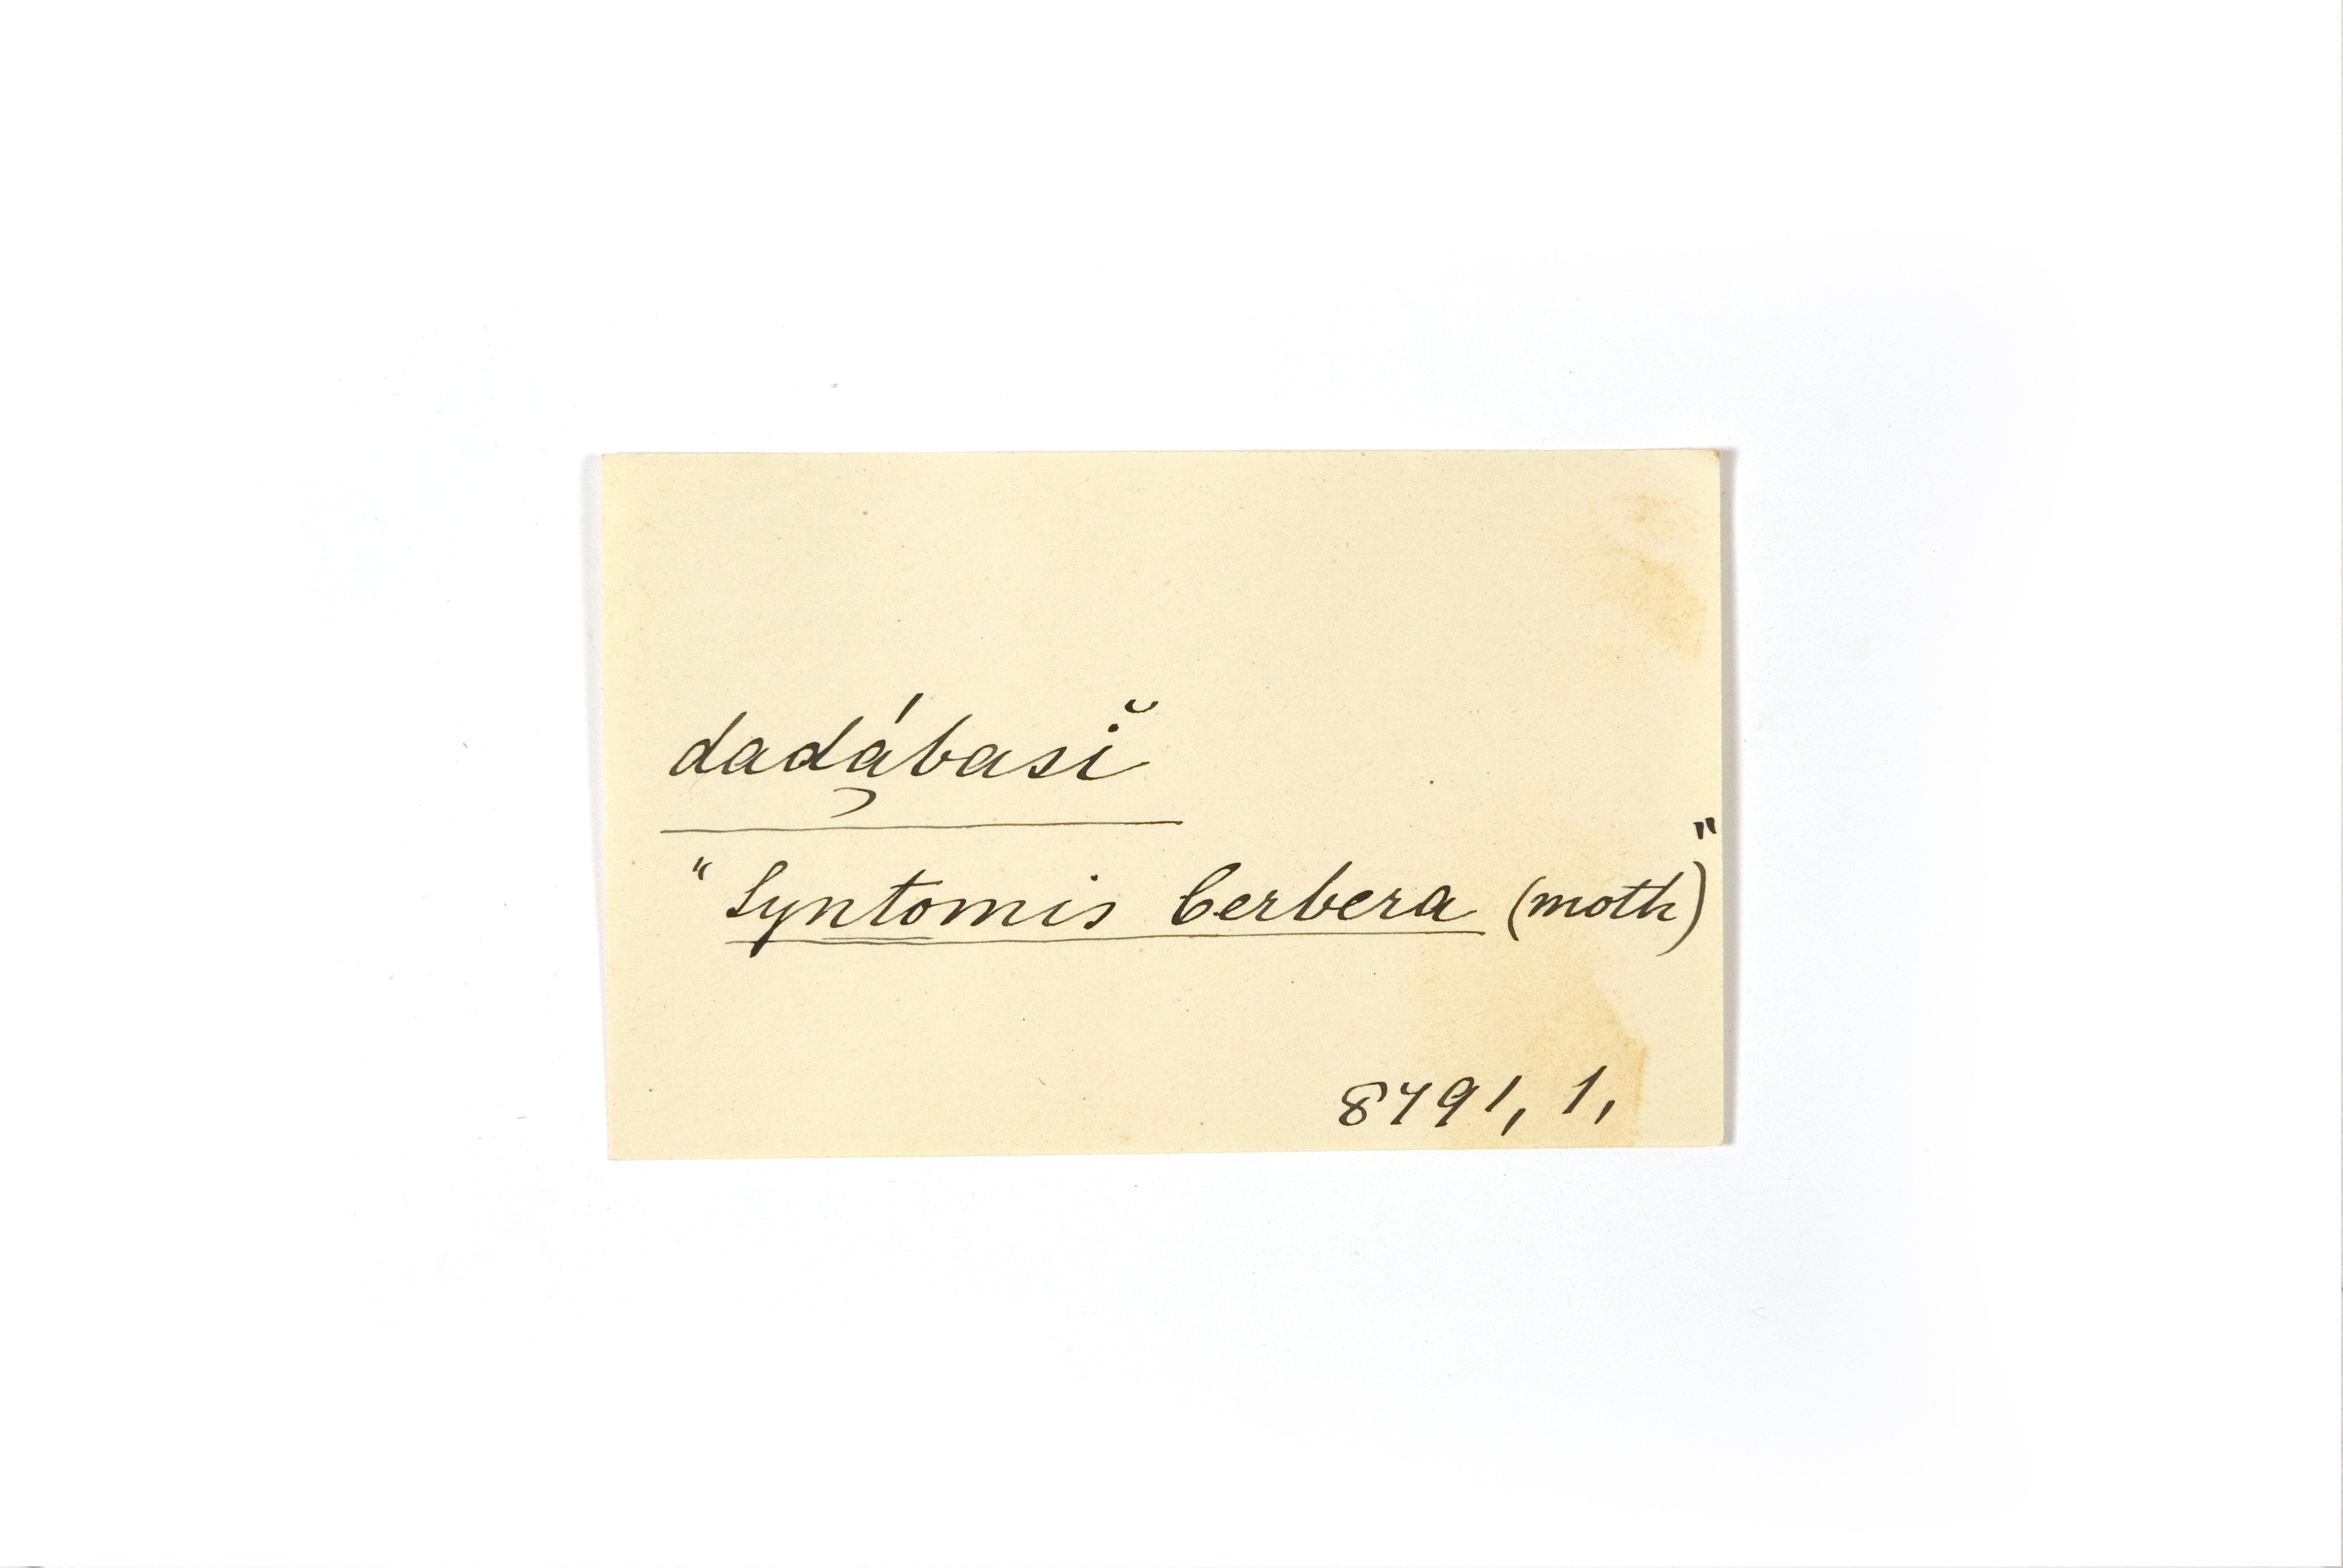 dadábasĭ
"Syntomis Cerbera (moth)"
8791, 1,